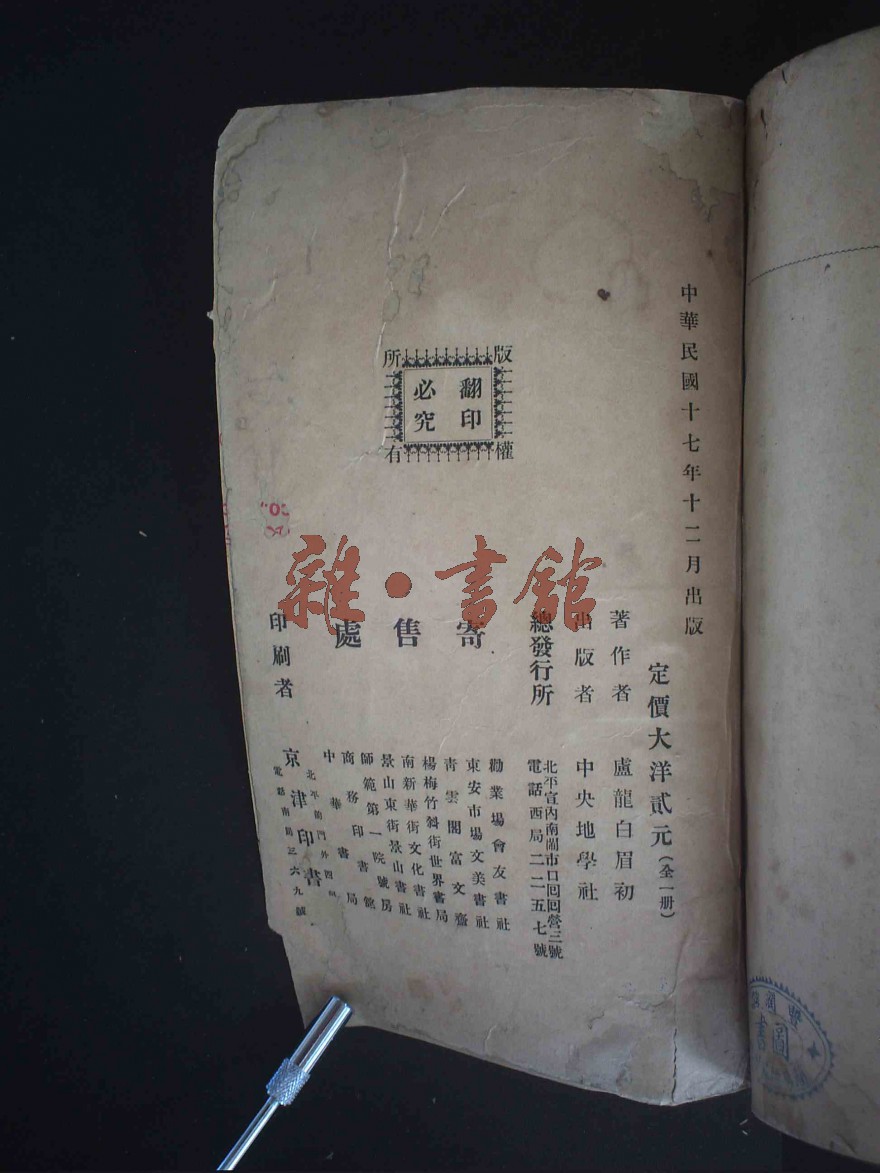 中華民國十七年十二月出版
定價大洋貳元(全一册)
著作者 盧龍白眉初
出版者 中央地學社
總發行所 北平宣內南鬧市口回回營三號
電話西局二二五七號
寄售處
勸業場會友書社
東安市場文美書社
青雲閣富文齋
楊梅竹斜街世界書局
南新華街文化書社
景山東街景山書社
師範第一院號房
商務印書館
中華書局
印刷者 京津印書
北平前門外
電話南局三六九號
版權所有
翻印必究
雜·書館